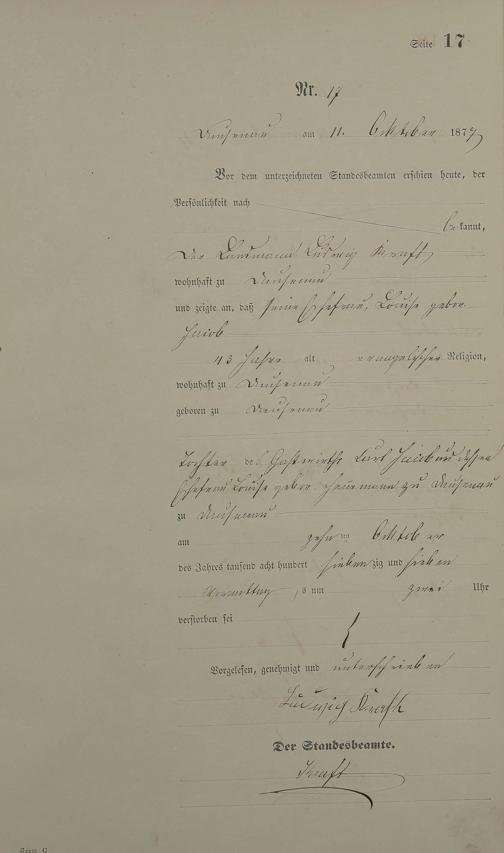 Seite 17
Nr. 17
Dausenau am 11. Oktober 1877
Vor dem unterzeichneten Standesbeamten erschien heute, der
Persönlichkeit nach
bekannt,
Der Landmann Ludwig Kraft,
wohnhaft zu Dausenau
und zeigte an, daß seine Ehefrau, Louise gebor.
Jacob
43 Jahre alt evangelischer Religion,
wohnhaft zu Dausenau
geboren zu Dausenau
Tochter des Gastwirths Carl Jacob und dessen
Ehefrau Louise gebor. zu Dausenau
zu Dausenau
am zehnten Oktober
des Jahres tausend acht hundert siebenzig und sieben
Vormittags um zwei Uhr
verstorben sei
Vorgelesen, genehmigt und unterschrieben
Ludwig Kraft
Der Standesbeamte.
Kraft